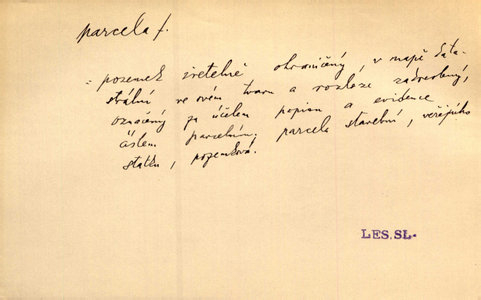 parcela f.
= pozemek zřetelně ohraničený, v mapě kata-
strální ve svém tvaru a rozloze zadresbený,
označený za účelem popisu a evidence
číslem parcelním; parcela stavební, veřejného
statku, pozemková.
LES. SL.